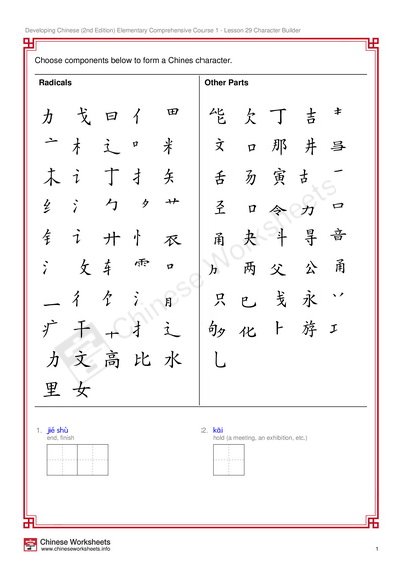 Developing Chinese (2nd Edition) Elementary Comprehensive Course 1 - Lesson 29 Character Builder
Choose components below to form a Chines character.
Radicals
Other Parts
力 戈 日 亻 田
能 欠 丁 吉
亠 木 辶 口 米
文 口 那 井
木 讠 丁 扌 矢
舌 寅 古 一
纟 氵 勹 艹
口 令 力 口
钅 讠 廾 忄 衣
甬 夬 斗 寻 音
氵 攵 车 口
两 父 公 甬
一 彳 饣 氵
只 巳 戋 永 丷
疒 干 扌 辶
化 卜 工
力 文 高 比 水
乚
里 女
1. jié shù
end, finish
2. kāi
hold (a meeting, an exhibition, etc.)
Chinese Worksheets
Chinese Worksheets
www.chineseworksheets.info
1